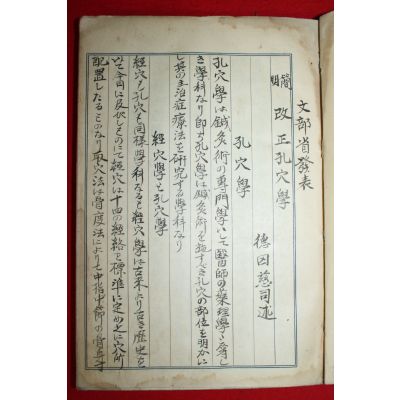 文部省發表
簡明 改正孔穴學
德田慈司述
孔穴學
孔穴學は鍼灸術の專門學にして醫師の藥理學に屬し
き學科なり即ち孔穴學は鍼灸術を施すべき孔穴の部位を明かに
し其の主治症療法を研究する學科なり
經穴學と孔穴學
經穴も孔穴も同樣學科なると經穴學は古来より古き歷史を
今日に及ぼしものにて經穴は十四の經絡を標準に定め之に穴所
配置したるものなり取穴法は骨度法により中指中節の